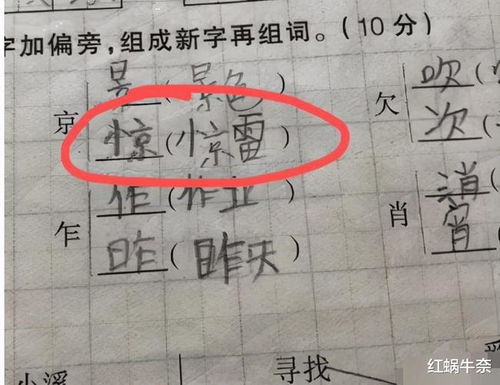 字加偏旁，组成新字再组词。（10分）
京 景（景色）
惊（惊雷）
乍 作（作业）
昨（昨天）
欠 吹（
次（
肖 消（
宵（
小溪
寻找
红蜗牛奈